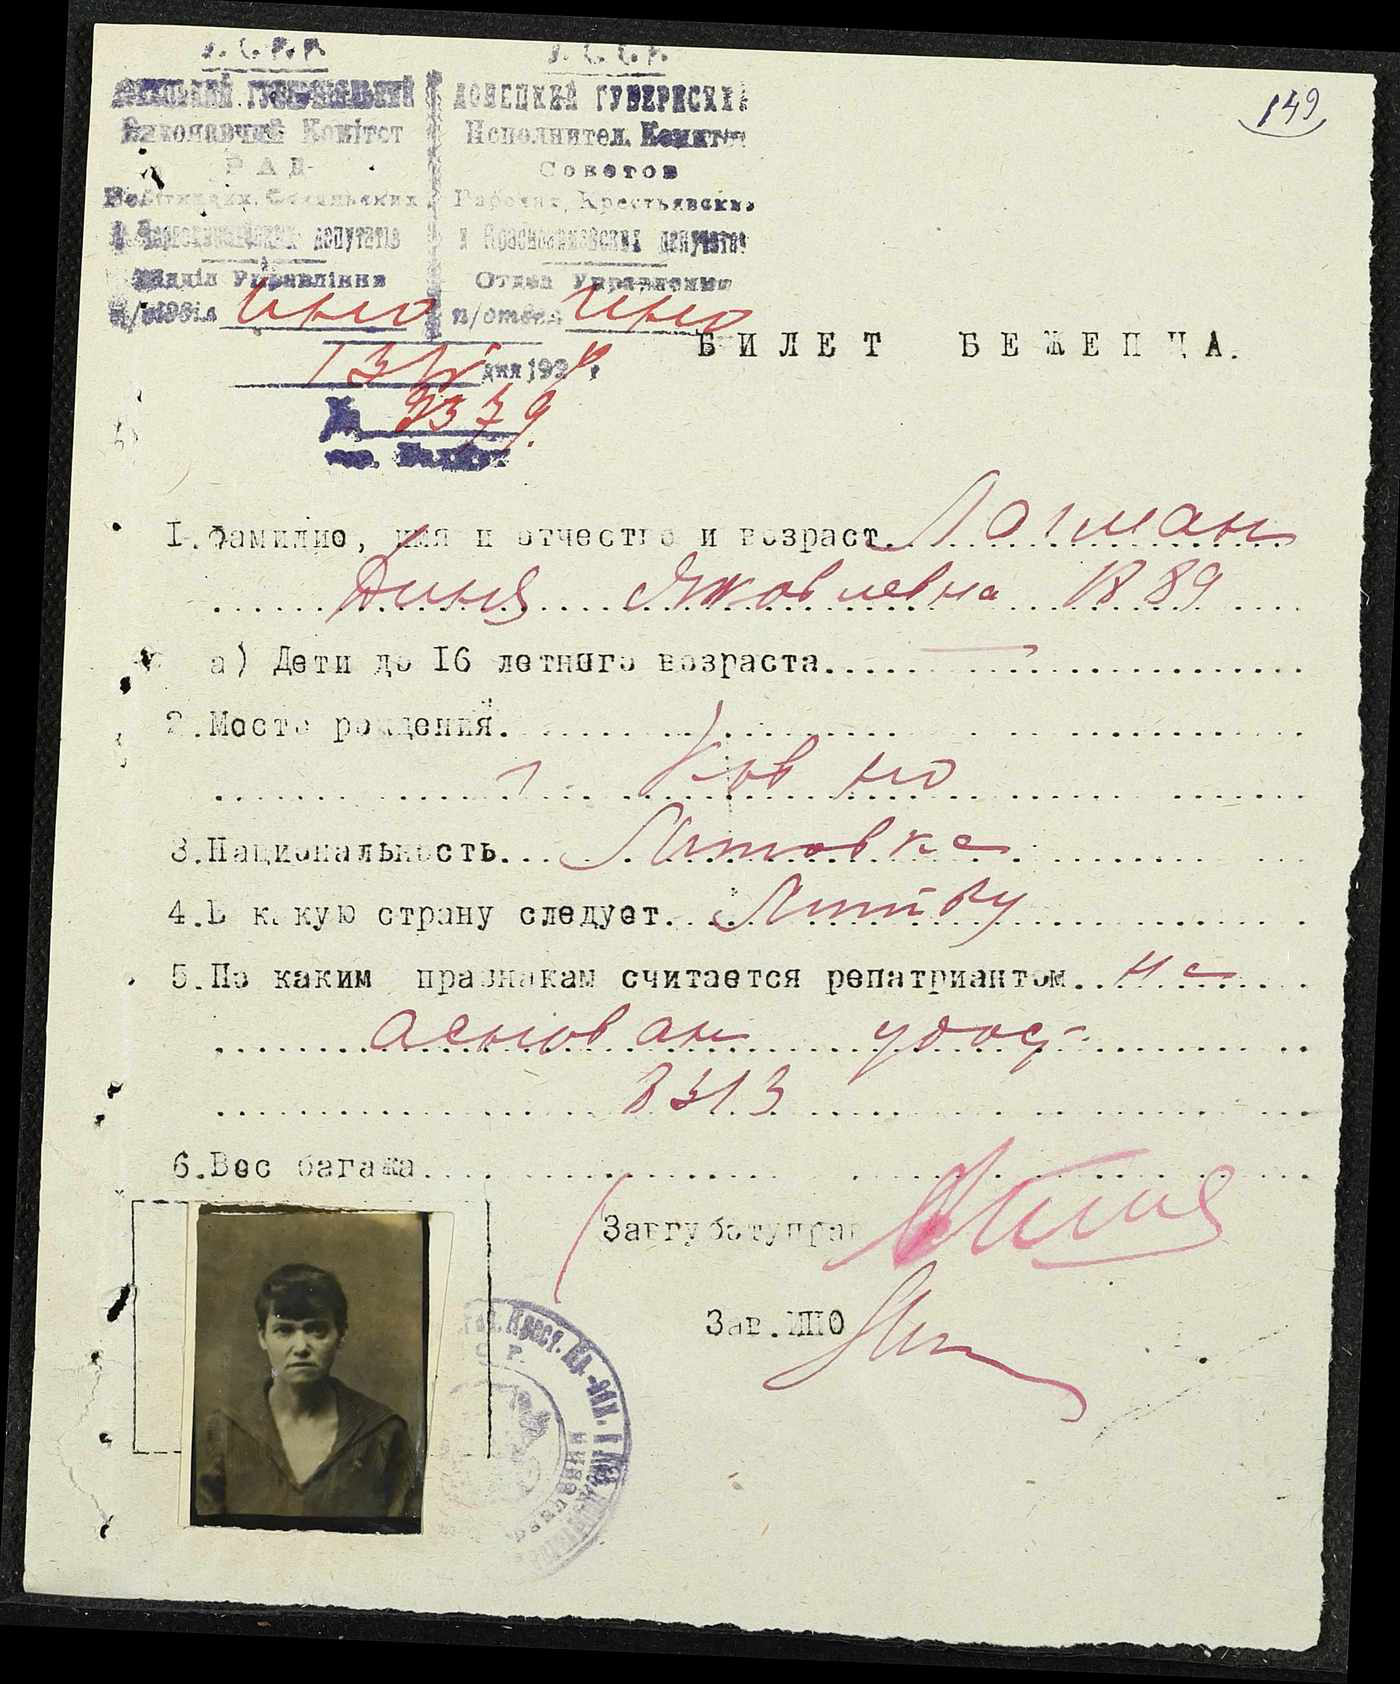 149
У. С. Р. Р.
Виконавчий Комітет
РАД
депутатів
Відділ Управління
п/відділ ино
У. С. С. Р.
ДОНЕЦКИЙ ГУБЕРНСКИЙ
Исполнител. Комитет
Советов
Рабочих, Крестьянских
и Красноармейских депутатов
Отдел Управления
п/отдел ино
дня 192
№ 3379
гор. Бахмут
БИЛЕТ БЕЖЕНЦА.
1. Фамилию, имя и отчество и возраст. Логман
Дина Яковлевна 1889
а) Дети до 16 летнего возраста. —
2. Место рождения.
г Ковно
3. Национальность. Литовка
4. В какую страну следует. Литву
5. По каким признакам считается репатриантом. на
основан удос
8313
6. Вес багажа
Завгуботуправ
Зав. ИНО